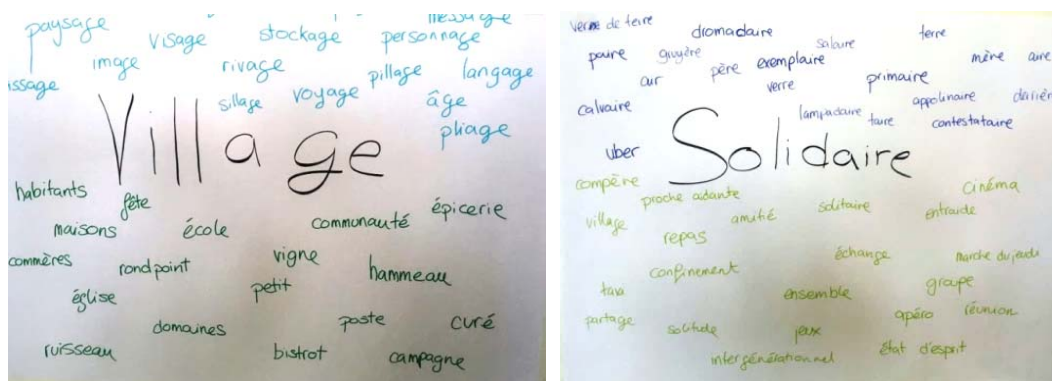 paysage visage stockage message
personnage
image rivage pillage langage
issage
sillage voyage âge
pliage
Village
habitants fête
maisons école communauté épicerie
commères rond point vigne hammeau
église petit
domaines poste curé
ruisseau bistrot campagne
dromadaire salaire terre
paire gruyère père exemplaire mère aire
air verre primaire
calvaire lampadaire appolinaire
taire contestataire
uber
Solidaire
compère proche aidante cinéma
village amitié solitaire entraide
repas
échange marche du jeudi
confinement
taxi ensemble groupe
partage solitude jeux apéro réunion
intergénérationnel état d'esprit